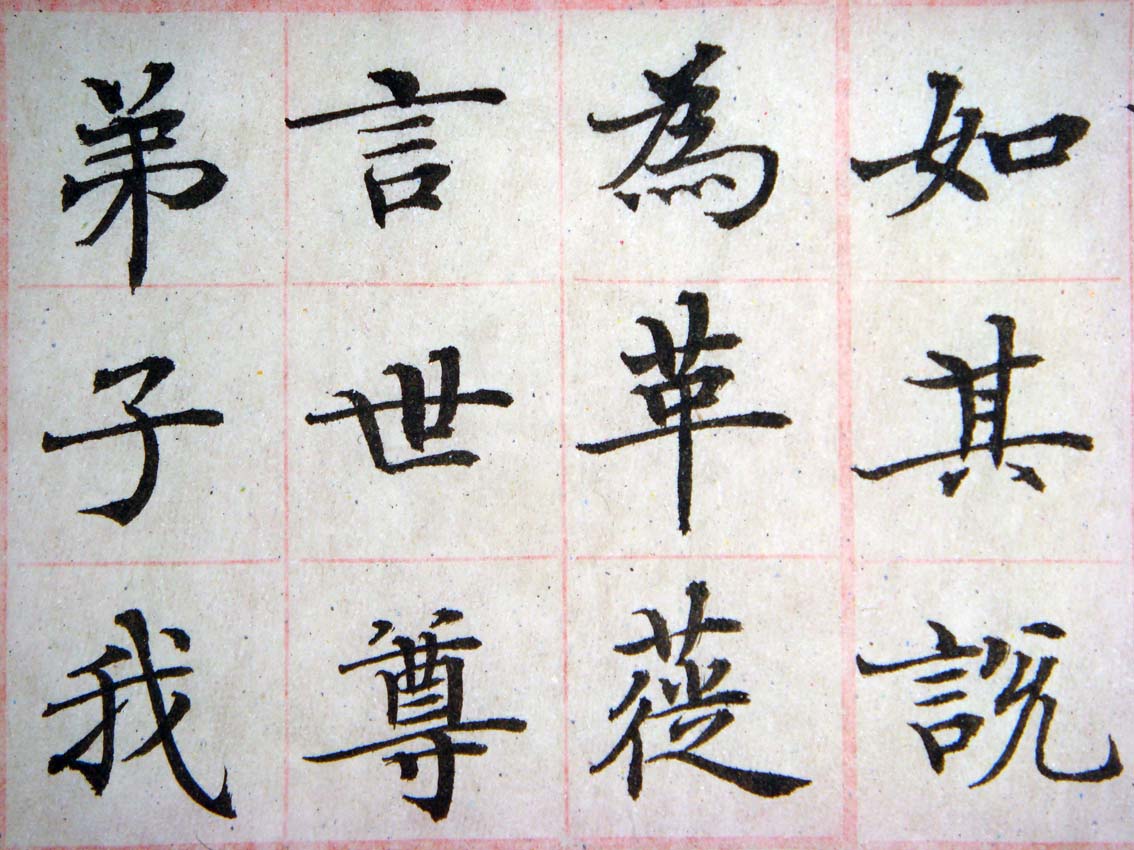 如其說
為革蓰
言世尊
弟子我